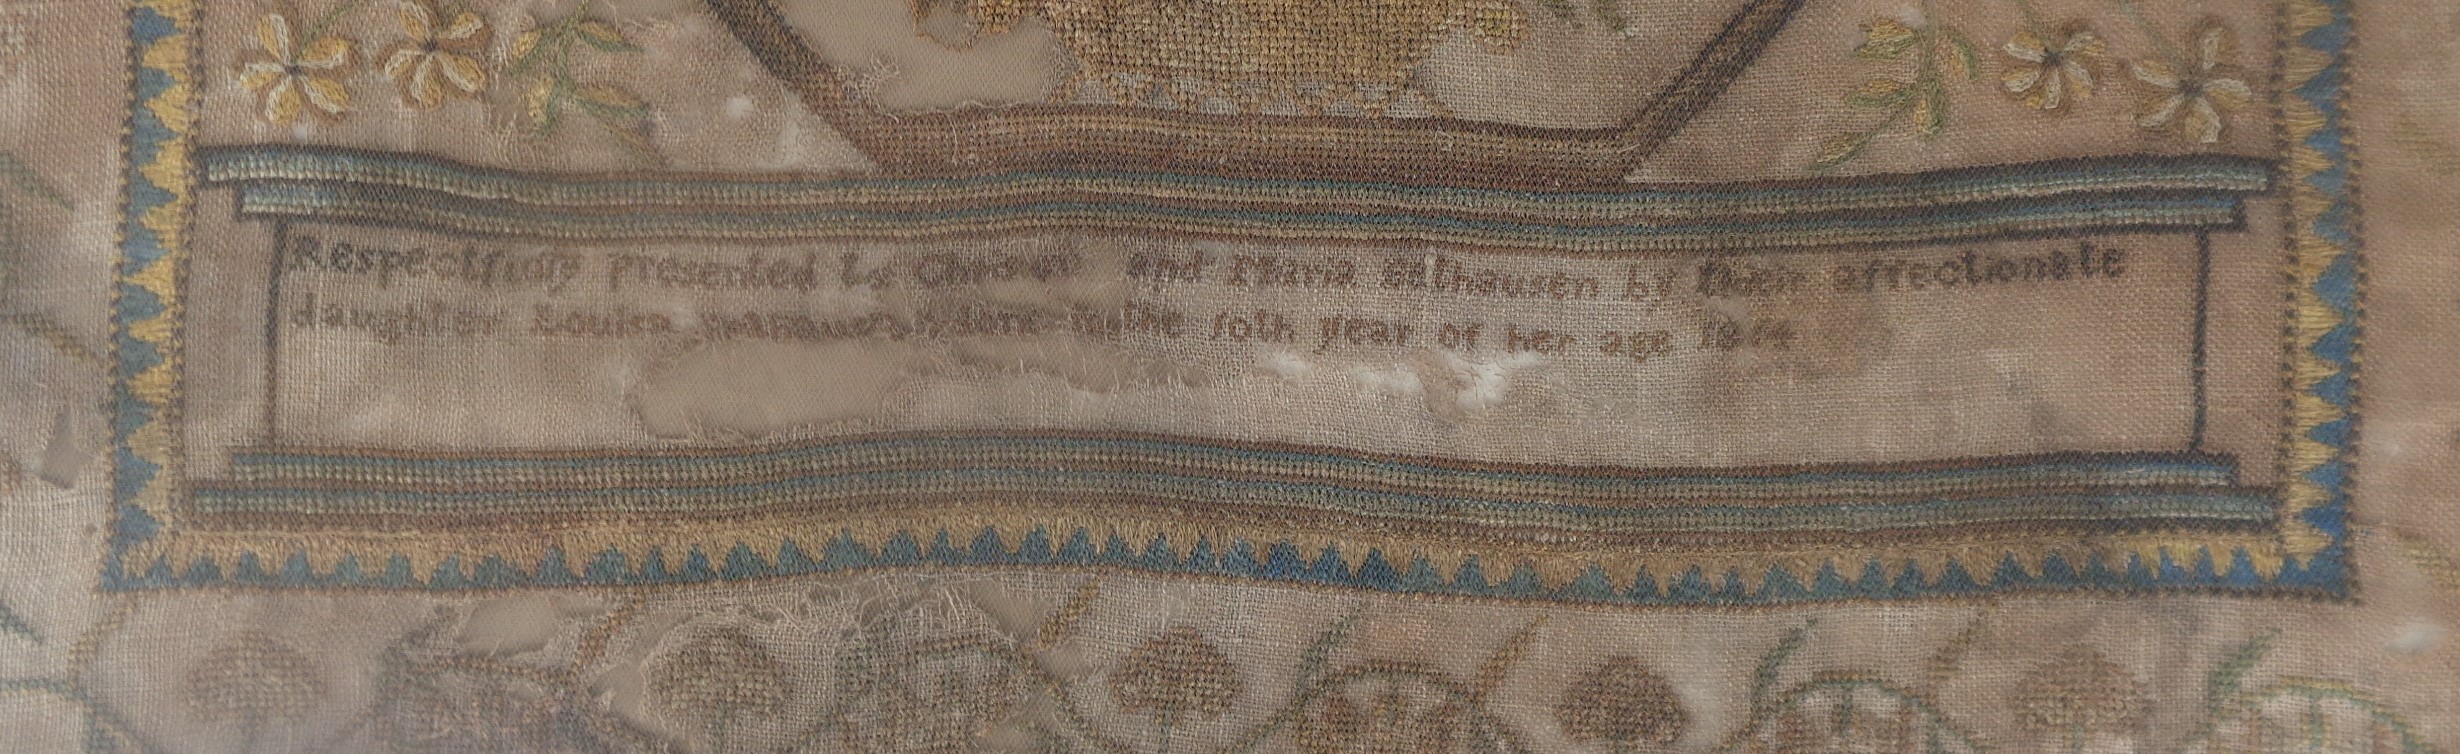 Respectfully presented to and Maria by their affectionate
daughter Louisa in the 10th year of Her age